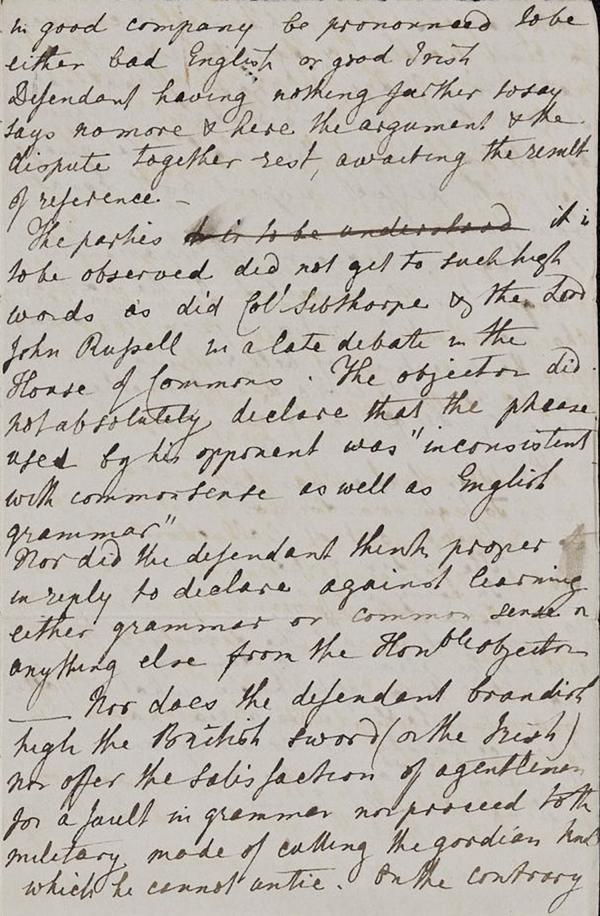 in good company be pronounced to be
either bad English or good Irish
Defendant having nothing further to say
says no more & here the argument & the
dispute together rest, awaiting the result
of reference –
The parties it is to be understood it is
to be observed did not get to such high
words as did Col Sibthorpe & the Lord
John Russell in a late debate in the
House of Commons. The objector did
not absolutely declare that the phrase
used by his opponent was "inconsistent
with common sense as well as English
grammar"
Nor did the defendant think proper
in reply to declare against learning
either grammar or common sense or
anything else from the Honble objector
— Nor does the defendant brandish
high the British sword (or the Irish)
nor offer the satisfaction of a gentleman
for a fault in grammar nor proceed to the
military mode of cutting the gordian knot
which he cannot untie. On the contrary